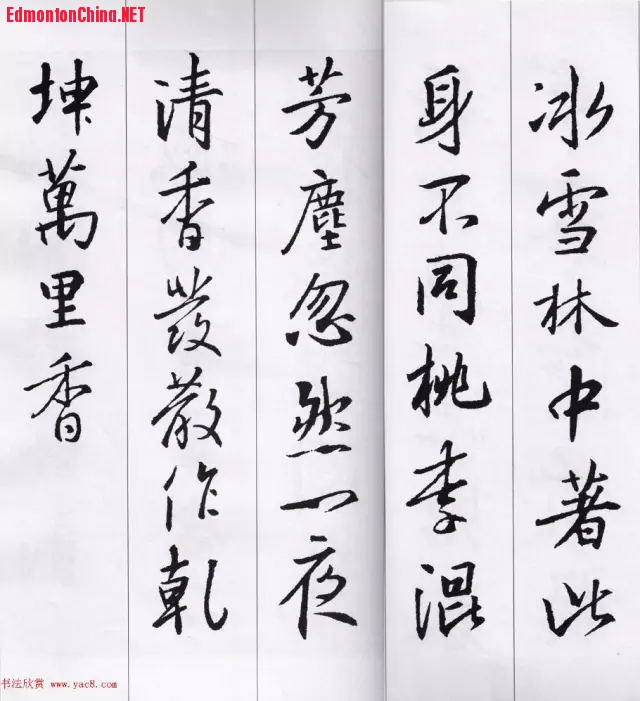 EdmontonChina.NET
冰雪林中著此
身不同桃李混
芳塵忽然一夜
清香發散作乾
坤萬里香
书法欣赏 www.yac8.com